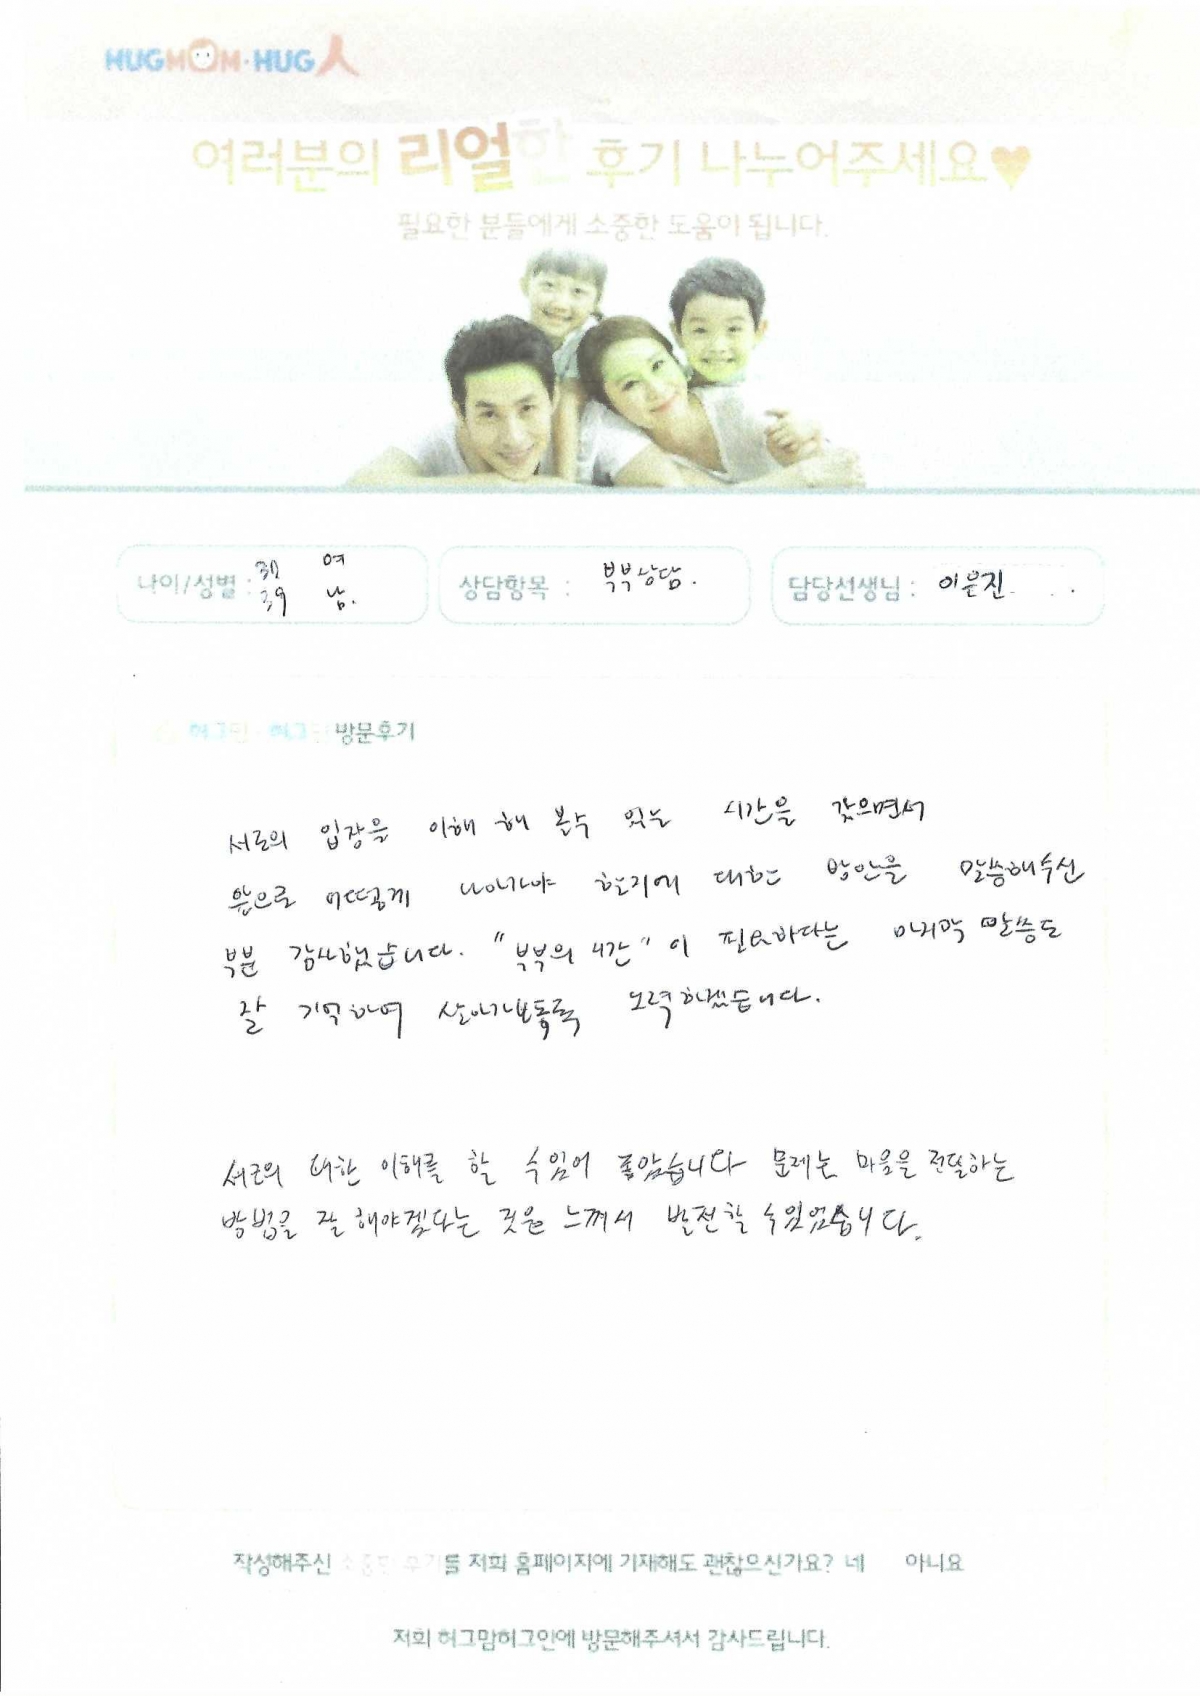 HUGMOM·HUG人
여러분의 리얼한 후기 나누어주세요♥
필요한 분들에게 소중한 도움이 됩니다.
나이/성별 : 37 여
39 남.
상담항목 : 부부상담.
담당선생님 : 이은진
허그맘·허그인 방문후기
서로의 입장을 이해 해 본수 있는 시간을 갖으면서
앞으로 어떻게 나아가야 한지에 대한 방안을 말씀해주신
부분 감사했습니다. "부부의 시간"이 필요하다는 마지막 말씀도
잘 기억하여 살아가보도록 노력하겠습니다.
서로의 대한 이해를 할 수있어 좋았습니다 문제는 마음을 전달하는
방법을 잘 해야겠다는 것을 느껴서 발전할 수있었습니다.
작성해주신 소중한 후기를 저희 홈페이지에 기재해도 괜찮으신가요? 네 아니요
저희 허그맘허그인에 방문해주셔서 감사드립니다.